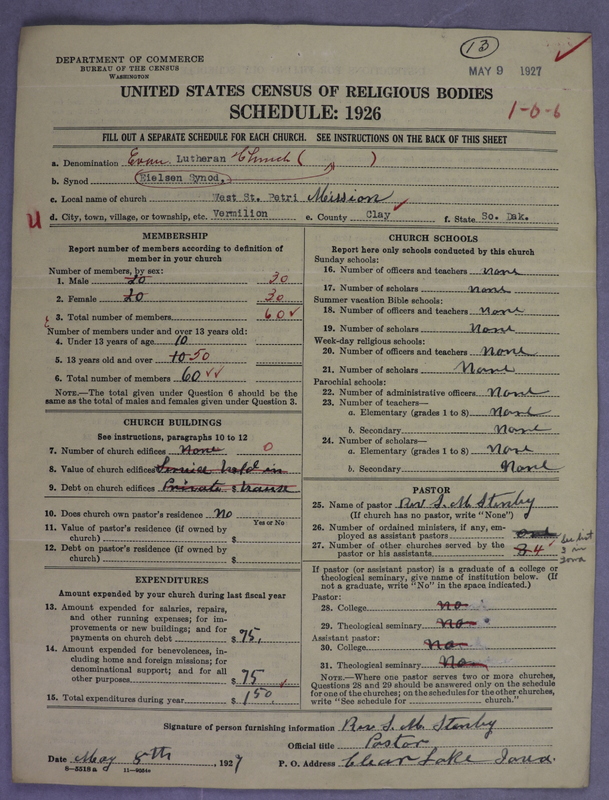 13
MAY 9 1927
DEPARTMENT OF COMMERCE
BUREAU OF THE CENSUS
WASHINGTON
UNITED STATES CENSUS OF RELIGIOUS BODIES
SCHEDULE: 1926
1-0-6
FILL OUT A SEPARATE SCHEDULE FOR EACH CHURCH. SEE INSTRUCTIONS ON THE BACK OF THIS SHEET
a. Denomination Evan Lutheran Church ( )
b. Synod Eielsen Synod.
c. Local name of church West St. Petri Mission
U d. City, town, village, or township, etc. Vermilion e. County Clay f. State So. Dak.
MEMBERSHIP
Report number of members according to definition of member in your church
Number of members, by sex:
1. Male 20 30
2. Female 20 30
3. Total number of members 60
Number of members under and over 13 years old:
4. Under 13 years of age 10
5. 13 years old and over 10 50
6. Total number of members 60
NOTE.—The total given under Question 6 should be the same as the total of males and females given under Question 3.
CHURCH BUILDINGS
See instructions, paragraphs 10 to 12
7. Number of church edifices None 0
8. Value of church edifices Service held in
9. Debt on church edifices Private house
10. Does church own pastor's residence? No
Yes or No
11. Value of pastor's residence (if owned by church) $
12. Debt on pastor's residence (if owned by church) $
EXPENDITURES
Amount expended by your church during last fiscal year
13. Amount expended for salaries, repairs, and other running expenses; for improvements or new buildings; and for payments on church debt $ 75,
14. Amount expended for benevolences, including home and foreign missions; for denominational support; and for all other purposes $ 75
15. Total expenditures during year $ 150,
CHURCH SCHOOLS
Report here only schools conducted by this church
Sunday schools:
16. Number of officers and teachers none
17. Number of scholars none
Summer vacation Bible schools:
18. Number of officers and teachers None
19. Number of scholars None
Week-day religious schools:
20. Number of officers and teachers None
21. Number of scholars None
Parochial schools:
22. Number of administrative officers None
23. Number of teachers—
a. Elementary (grades 1 to 8) None
b. Secondary None
24. Number of scholars—
a. Elementary (grades 1 to 8) None
b. Secondary None
PASTOR
25. Name of pastor Rev S. M. Stenby
(If church has no pastor, write "None")
26. Number of ordained ministers, if any, employed as assistant pastors
27. Number of other churches served by the pastor or his assistants 3 4
3 in Iowa
If pastor (or assistant pastor) is a graduate of a college or theological seminary, give name of institution below. (If not a graduate, write "No" in the space indicated.)
Pastor:
28. College no
29. Theological seminary no
Assistant pastor:
30. College no
31. Theological seminary no
NOTE.—Where one pastor serves two or more churches, Questions 28 and 29 should be answered only on the schedule for one of the churches; on the schedules for the other churches, write "See schedule for church."
Signature of person furnishing information Rev S. M. Stenby
Official title Pastor
Date May 8th, 1927 P. O. Address Clear Lake Iowa.
8-5518a